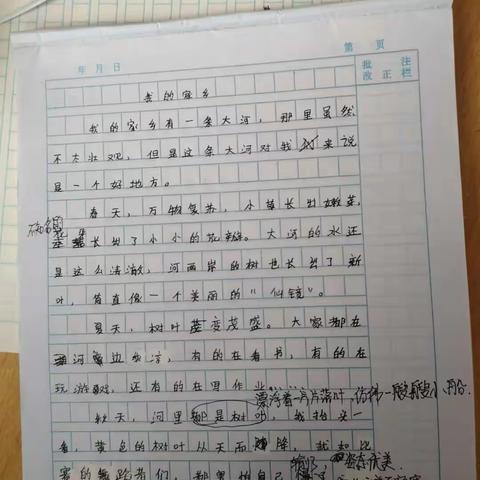 年 月 日
第 页
批改 注正栏
我的家乡
我的家乡有一条大河，那里虽然
不太壮观，但是这条大河对我来说
是一个好地方。
春天，万物复苏，小草长出嫩芽，
不知名的花
长出了小小的花瓣。大河的水还
是这么清澈，河两岸的树也长出了新
叶，简直像一个美丽的“仙镜”。
夏天，树叶变茂盛。大家都在
河边乘凉，有的在看书，有的在
玩游戏，还有的在写作业……
漂浮着一片片落叶，仿佛一艘艘小船
秋天，河里都是树叶，我抬头一
看，黄色的树叶从天而降，我如比
赛的舞蹈者们，都害怕自己
输了 姿态优美.